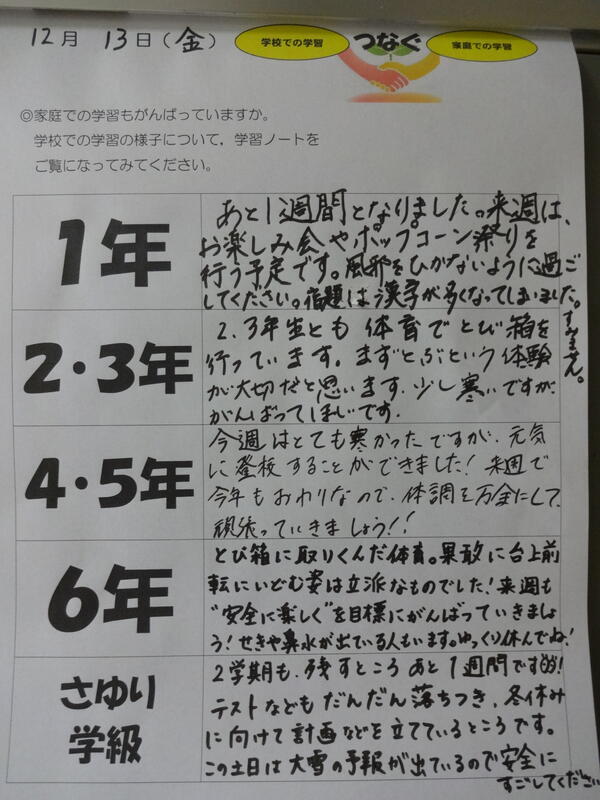 12月 13日（金）
学校での学習 つなぐ 家庭での学習
◎家庭での学習もがんばっていますか。
学校での学習の様子について，学習ノートを
ご覧になってみてください。
1年
あと1週間となりました。来週は、
お楽しみ会やポップコーン祭りを
行う予定です。風邪をひかないように過ご
してください。宿題は漢字が多くなってしまいました。
すみません。
2・3年
2、3年生とも 体育でとび箱を
行っています。まずとぶという体験
が大切だと思います。少し寒いですが、
がんばってほしいです。
4・5年
今週はとても寒かったですが、元気
に登校することができました！来週で
今年もおわりなので、体調を万全にして、
頑張っていきましょう！！
6年
とび箱に取りくんだ体育。果敢に台上前
転にいどむ姿は立派なものでした！来週も
"安全に楽しく"を目標にがんばっていきましょ
う！せきや鼻水が出ている人もいます。ゆっくり休んでね！
さゆり
学級
2学期も、残すところあと1週間です！
テストなどもだんだん落ちつき、冬休み
に向けて計画などを立てているところです。
この土日は大雪の予報が出ているので安全に
すごしてください